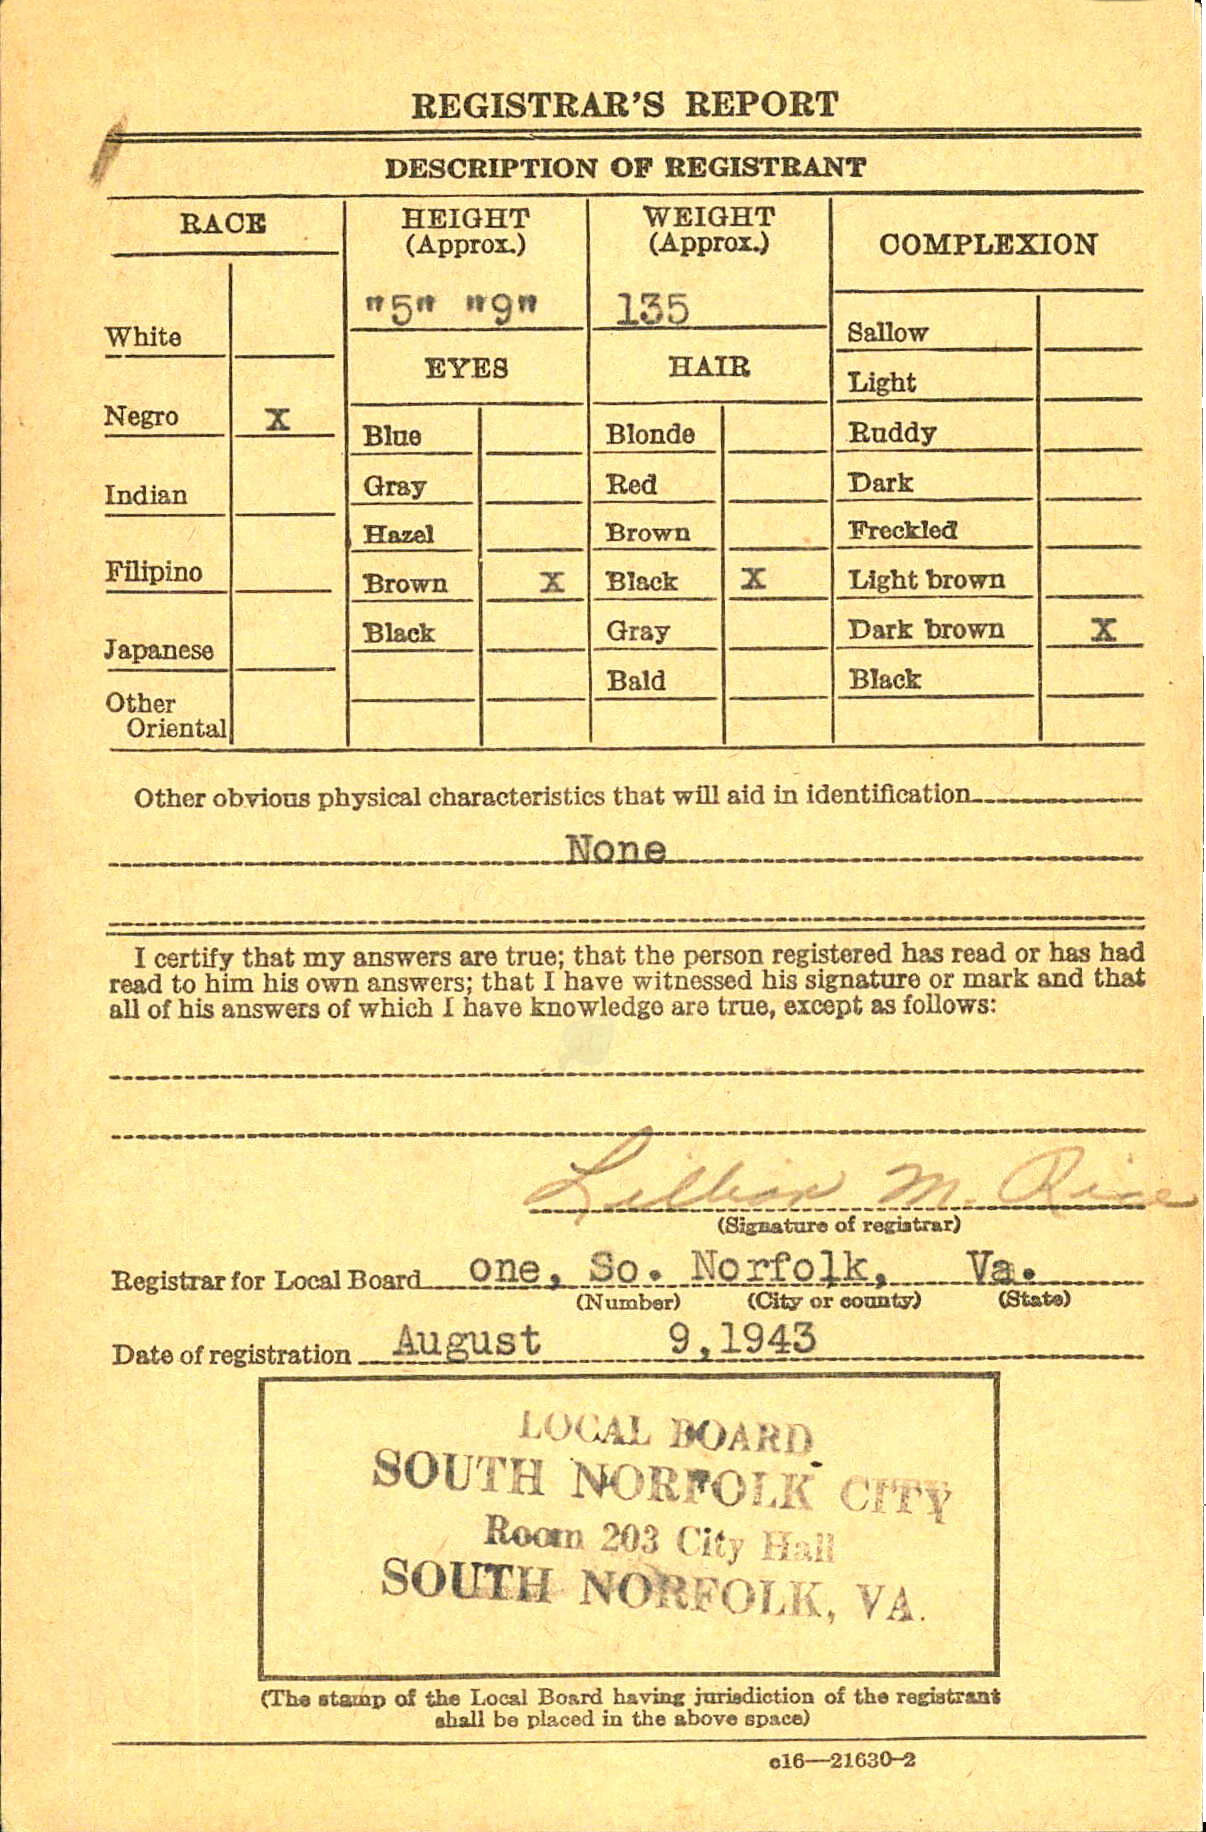 REGISTRAR'S REPORT
DESCRIPTION OF REGISTRANT
RACE
White
Negro X
Indian
Filipino
Japanese
Other
Oriental
HEIGHT
(Approx.)
"5" "9"
WEIGHT
(Approx.)
135
EYES
Blue
Gray
Hazel
Brown X
Black
HAIR
Blonde
Red
Brown
Black X
Gray
Bald
COMPLEXION
Sallow
Light
Ruddy
Dark
Freckled
Light brown
Dark brown X
Black
Other obvious physical characteristics that will aid in identification
None
I certify that my answers are true; that the person registered has read or has had
read to him his own answers; that I have witnessed his signature or mark and that
all of his answers of which I have knowledge are true, except as follows:
Lillian M. Rice
(Signature of registrar)
Registrar for Local Board one, So. Norfolk, Va.
(Number) (City or county) (State)
Date of registration August 9,1943
LOCAL BOARD
SOUTH NORFOLK CITY
Room 203 City Hall
SOUTH NORFOLK, VA.
(The stamp of the Local Board having jurisdiction of the registrant
shall be placed in the above space)
c16—21630-2